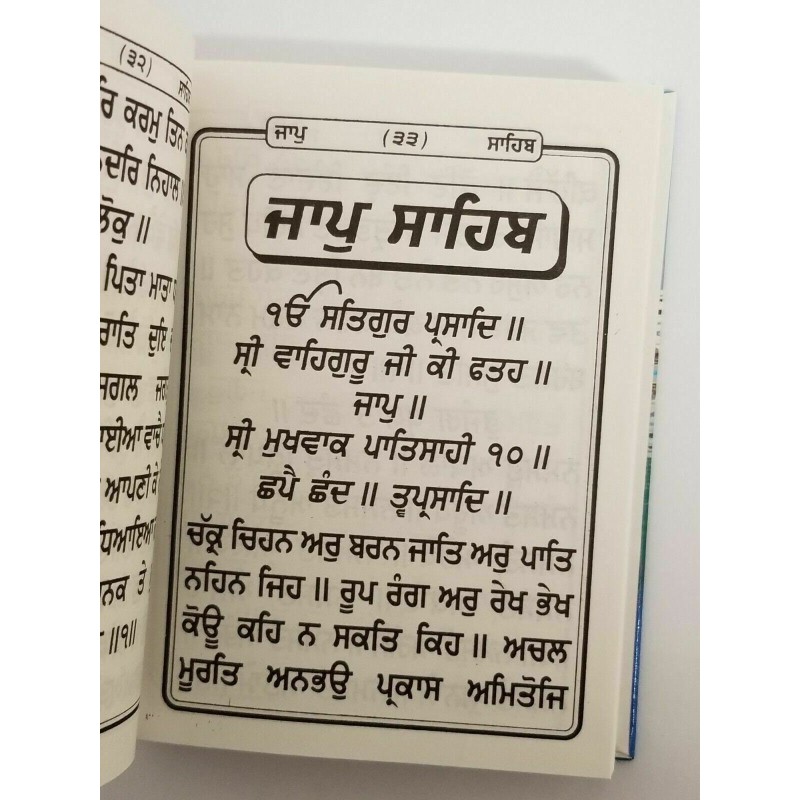 (੩੨) ਸਾਹਿਬ
ਕਰਮੁ ਤਿਨ
ਨਦਰਿ ਨਿਹਾਲ
ਲੋਕੁ ॥
ਪਿਤਾ ਮਾਤਾ
ਰਾਤਿ ਦੁਇ
ਸਗਲ
ਵਾਚੈ
ਆਪਣੀ ਕੇ
ਧਿਆਇਆ
ਨਾਨਕ ਤੇ
॥੧॥
ਜਾਪੁ (੩੩) ਸਾਹਿਬ
ਜਾਪੁ ਸਾਹਿਬ
ੴ ਸਤਿਗੁਰ ਪ੍ਰਸਾਦਿ ॥
ਸ੍ਰੀ ਵਾਹਿਗੁਰੂ ਜੀ ਕੀ ਫਤਹ ॥
ਜਾਪੁ ॥
ਸ੍ਰੀ ਮੁਖਵਾਕ ਪਾਤਿਸਾਹੀ ੧੦ ॥
ਛਪੈ ਛੰਦ ॥ ਤ੍ਵਪ੍ਰਸਾਦਿ ॥
ਚੱਕ੍ਰ ਚਿਹਨ ਅਰੁ ਬਰਨ ਜਾਤਿ ਅਰੁ ਪਾਤਿ
ਨਹਿਨ ਜਿਹ ॥ ਰੂਪ ਰੰਗ ਅਰੁ ਰੇਖ ਭੇਖ
ਕੋਊ ਕਹਿ ਨ ਸਕਤਿ ਕਿਹ ॥ ਅਚਲ
ਮੂਰਤਿ ਅਨਭਉ ਪ੍ਰਕਾਸ ਅਮਿਤੋਜਿ